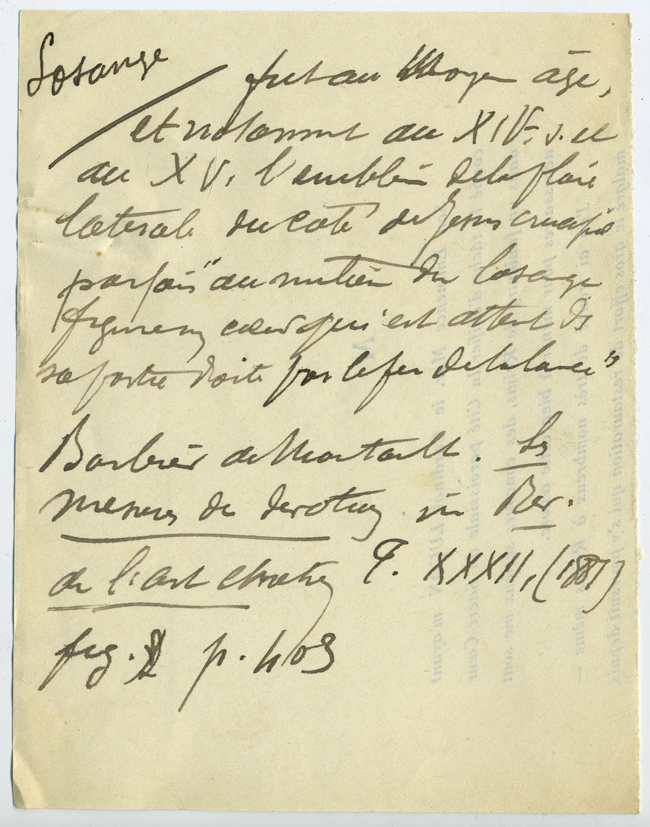 Losange
fut au Moyen âge,
et notamment au XIVe. s. et
au XV. l'emblème de la plaie
latérale du côté de Jesus crucifié
parfois "au milieu du losange
figure un cœur qui est atteint de
sa partie droite par le fer de la lance"
Barbier de Montault. Les
mesures de dévotion in Rev.
de l'art chrétien T. XXXII, (1881)
fig. 2 p. 403